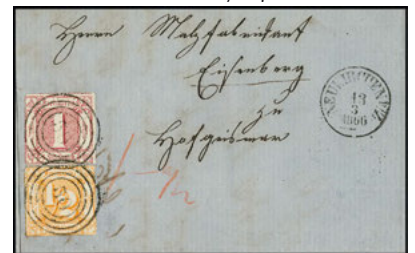 Herrn Malzfabrikant
Eisenberg
zu
Hofgeismar
NEUKIRCHEN
13
3
1866
1
1/2